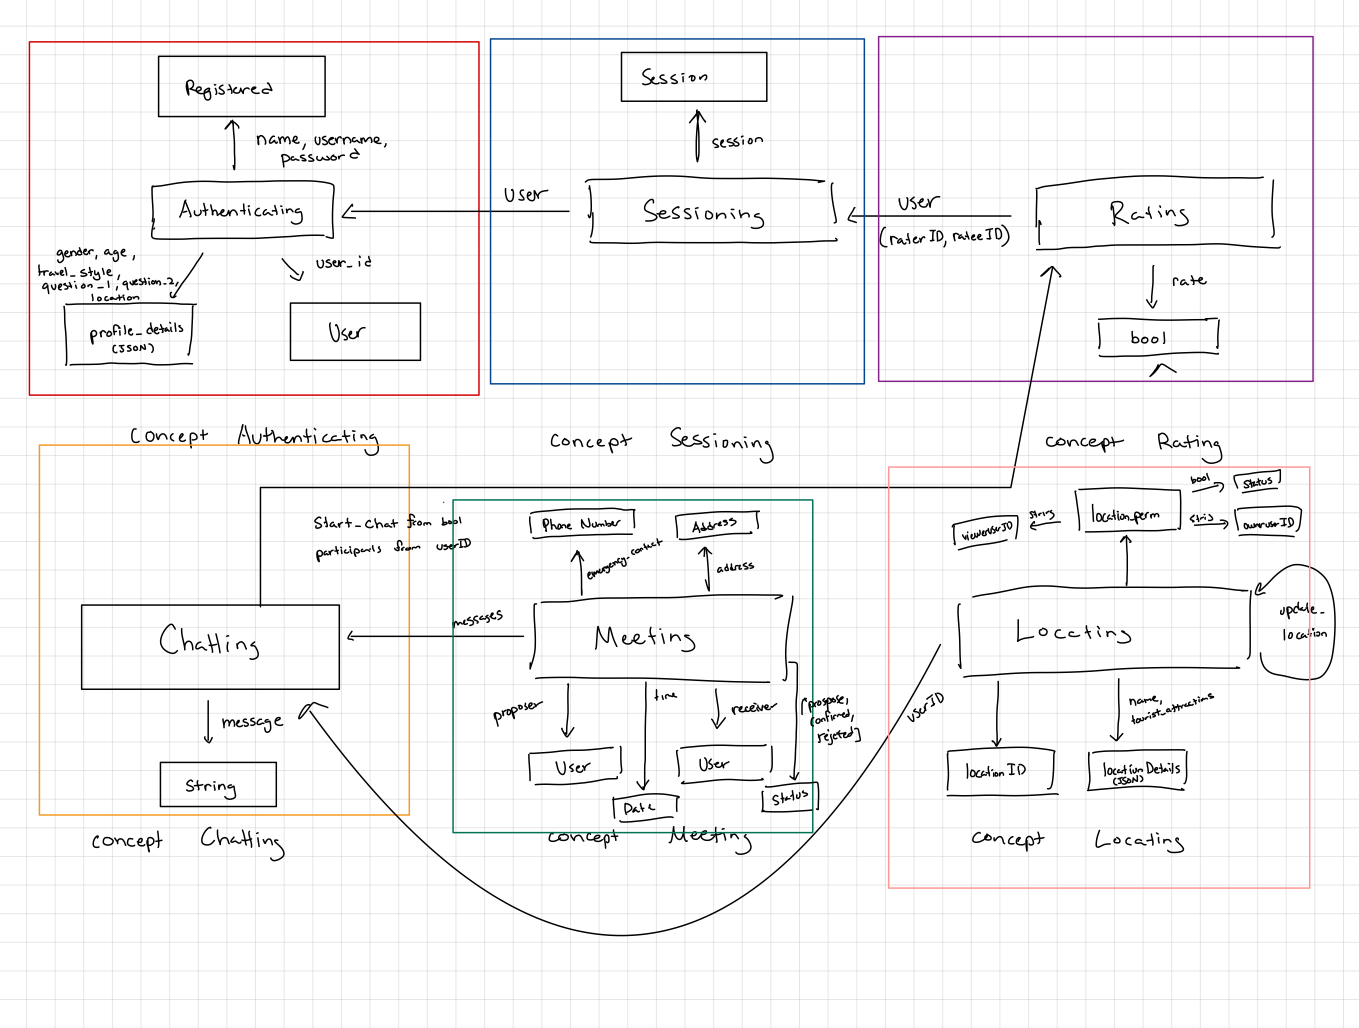 Registered
name, username,
password
Authenticating
gender, age,
travel_style,
question_1, question_2,
location
user_id
profile_details
(JSON)
User
Concept Authenticating
Session
session
User
Sessioning
concept Sessioning
User
(raterID, rateeID)
Rating
rate
bool
concept Rating
Start_chat from bool
participants from userID
Chatting
message
String
concept Chatting
Phone Number
Address
emergency_contact
address
messages
Meeting
proposer
time
receiver
[prospose,
confirmed,
rejected]
User
User
Date
Status
concept Meeting
bool
Status
location_perm
string
viewerUserID
ownerUserID
Locating
update_
location
userID
name,
tourist_attractions
location ID
location Details
(JSON)
concept Locating